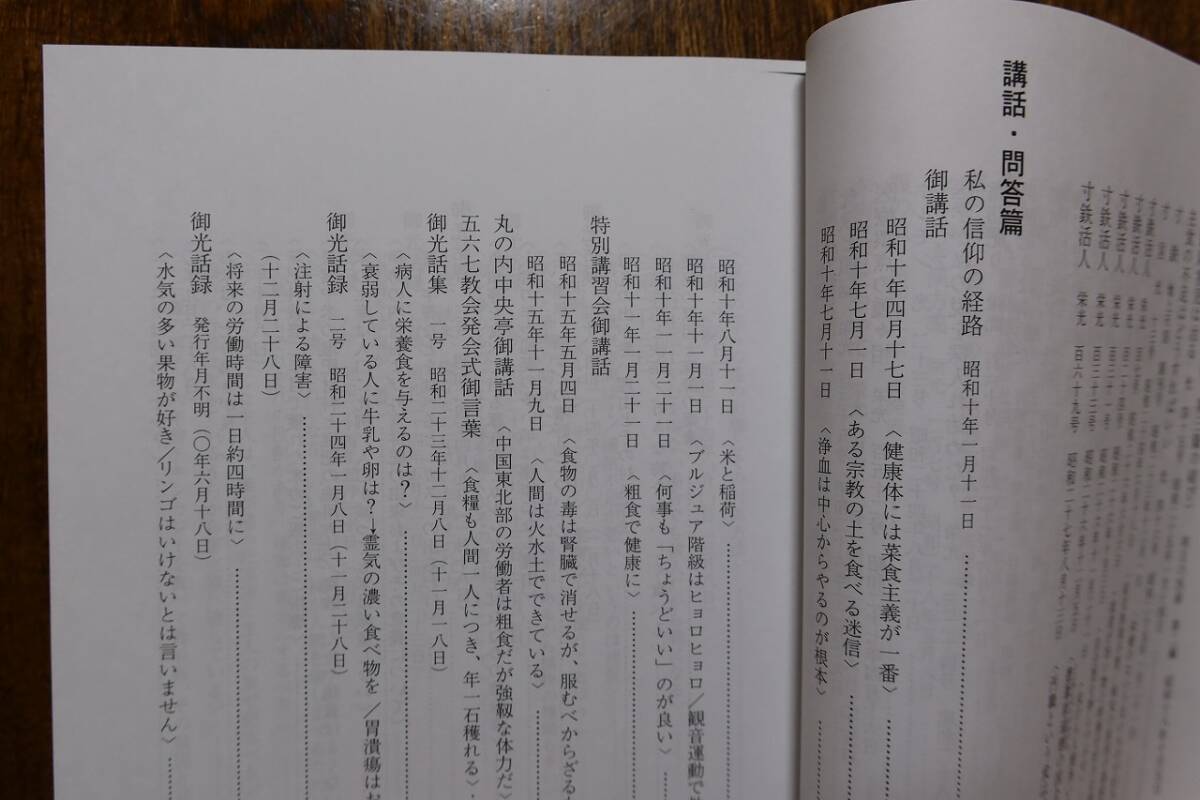 寸鉄活人 栄光
寸鉄活人 栄光
寸鉄活人 栄光
寸鉄活人 栄光 百六十九号 昭和二十七年八月
講話・問答篇
私の信仰の経路 昭和十年一月十一日
御講話
昭和十年四月十七日 〈健康体には菜食主義が一番〉
昭和十年七月一日 〈ある宗教の土を食べる迷信〉
昭和十年七月十一日 〈浄血は中心からやるのが根本〉
昭和十年八月十一日 〈米と稲荷〉
昭和十年十一月一日 〈ブルジュア階級はヒョロヒョロ/観音運動で
昭和十年一一月二十一日 〈何事も「ちょうどいい」のが良い〉
昭和十一年一月二十一日 〈粗食で健康に〉
特別講習会御講話
昭和十五年五月四日 〈食物の毒は腎臓で消せるが、服むべからざる
昭和十五年十一月九日 〈人間は火水土でできている〉
丸の内中央亭御講話 〈中国東北部の労働者は粗食だが強靱な体力だ〉
五六七教会発会式御言葉 〈食糧も人間一人につき、年一石穫れる〉
御光話集 一号 昭和二十三年十二月八日(十一月一八日)
〈病人に栄養食を与えるのは?〉
〈衰弱している人に牛乳や卵は?→霊気の濃い食べ物を/胃潰瘍はお
御光話録 二号 昭和二十四年一月八日(十一月二十八日)
〈注射による障害〉
(十二月二十八日)
〈将来の労働時間は一日約四時間に〉
御光話録 発行年月不明(〇年六月十八日)
〈水気の多い果物が好き/リンゴはいけないとは言いません〉